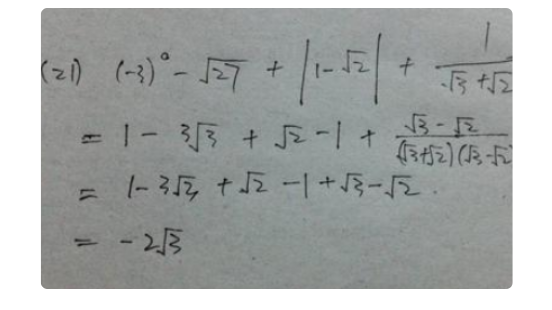 (21) (-3)⁰ - √27 + |1-√2| + 1/(√3+√2)
= 1 - 3√3 + √2 - 1 + (√3-√2)/((√3+√2)(√3-√2)
= 1 - 3√3 + √2 - 1 + √3 - √2.
= -2√3